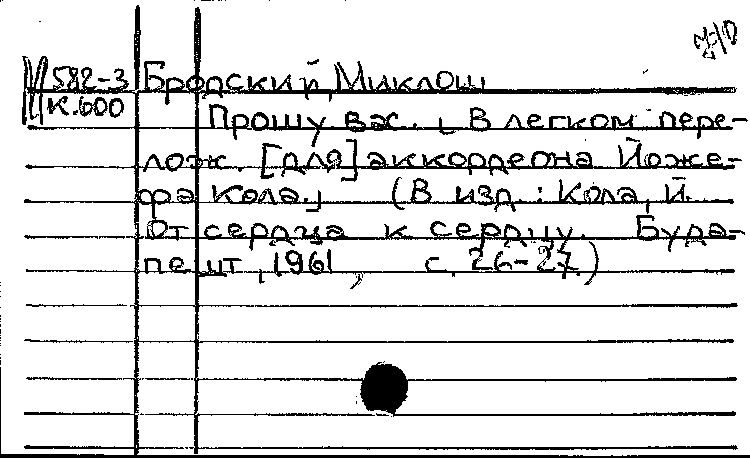 М 582-3 Бродский, Миклош
К.600 Прошу вас. [В легком пере-
лож. [для] аккордеона Йоже-
фа Кола.] (В изд.: Кола, Й.
От сердца к сердцу. Буда-
пешт, 1961, с. 26-27.)